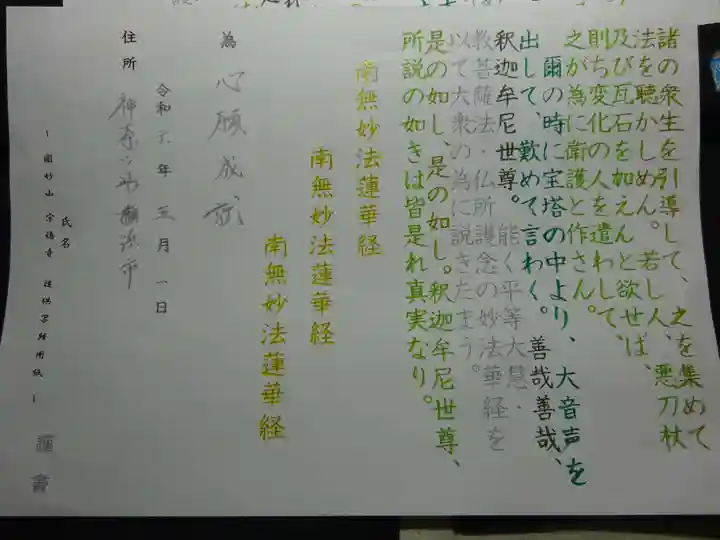 諸の衆生を引導して、之を集めて
法を聴かしめん。若し人、悪刀杖
及び瓦石を加えんと欲せば、
則ち変化の人を遣わして、
之が為に衛護と作さん。
爾の時に宝塔の中より、大音声を
出して、歎めて言わく。善哉善哉、
釈迦牟尼世尊。能く平等大慧・
教菩薩法・仏所護念の妙法華経を
以て大衆の為に説きたまう。
是の如し、是の如し。釈迦牟尼世尊、
所説の如きは皆是れ真実なり。
南無妙法蓮華経
南無妙法蓮華経
南無妙法蓮華経
為 心願成就
令和六年 五月一日
住所 神奈川県横浜市
氏名
謹書